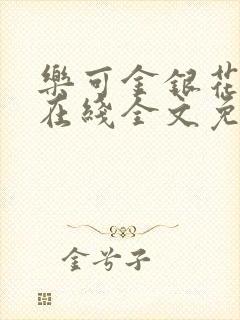 樂可金銀花
在綫全文免
金兮子